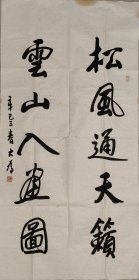 松風通天籟
雲山入畫圖
辛巳春